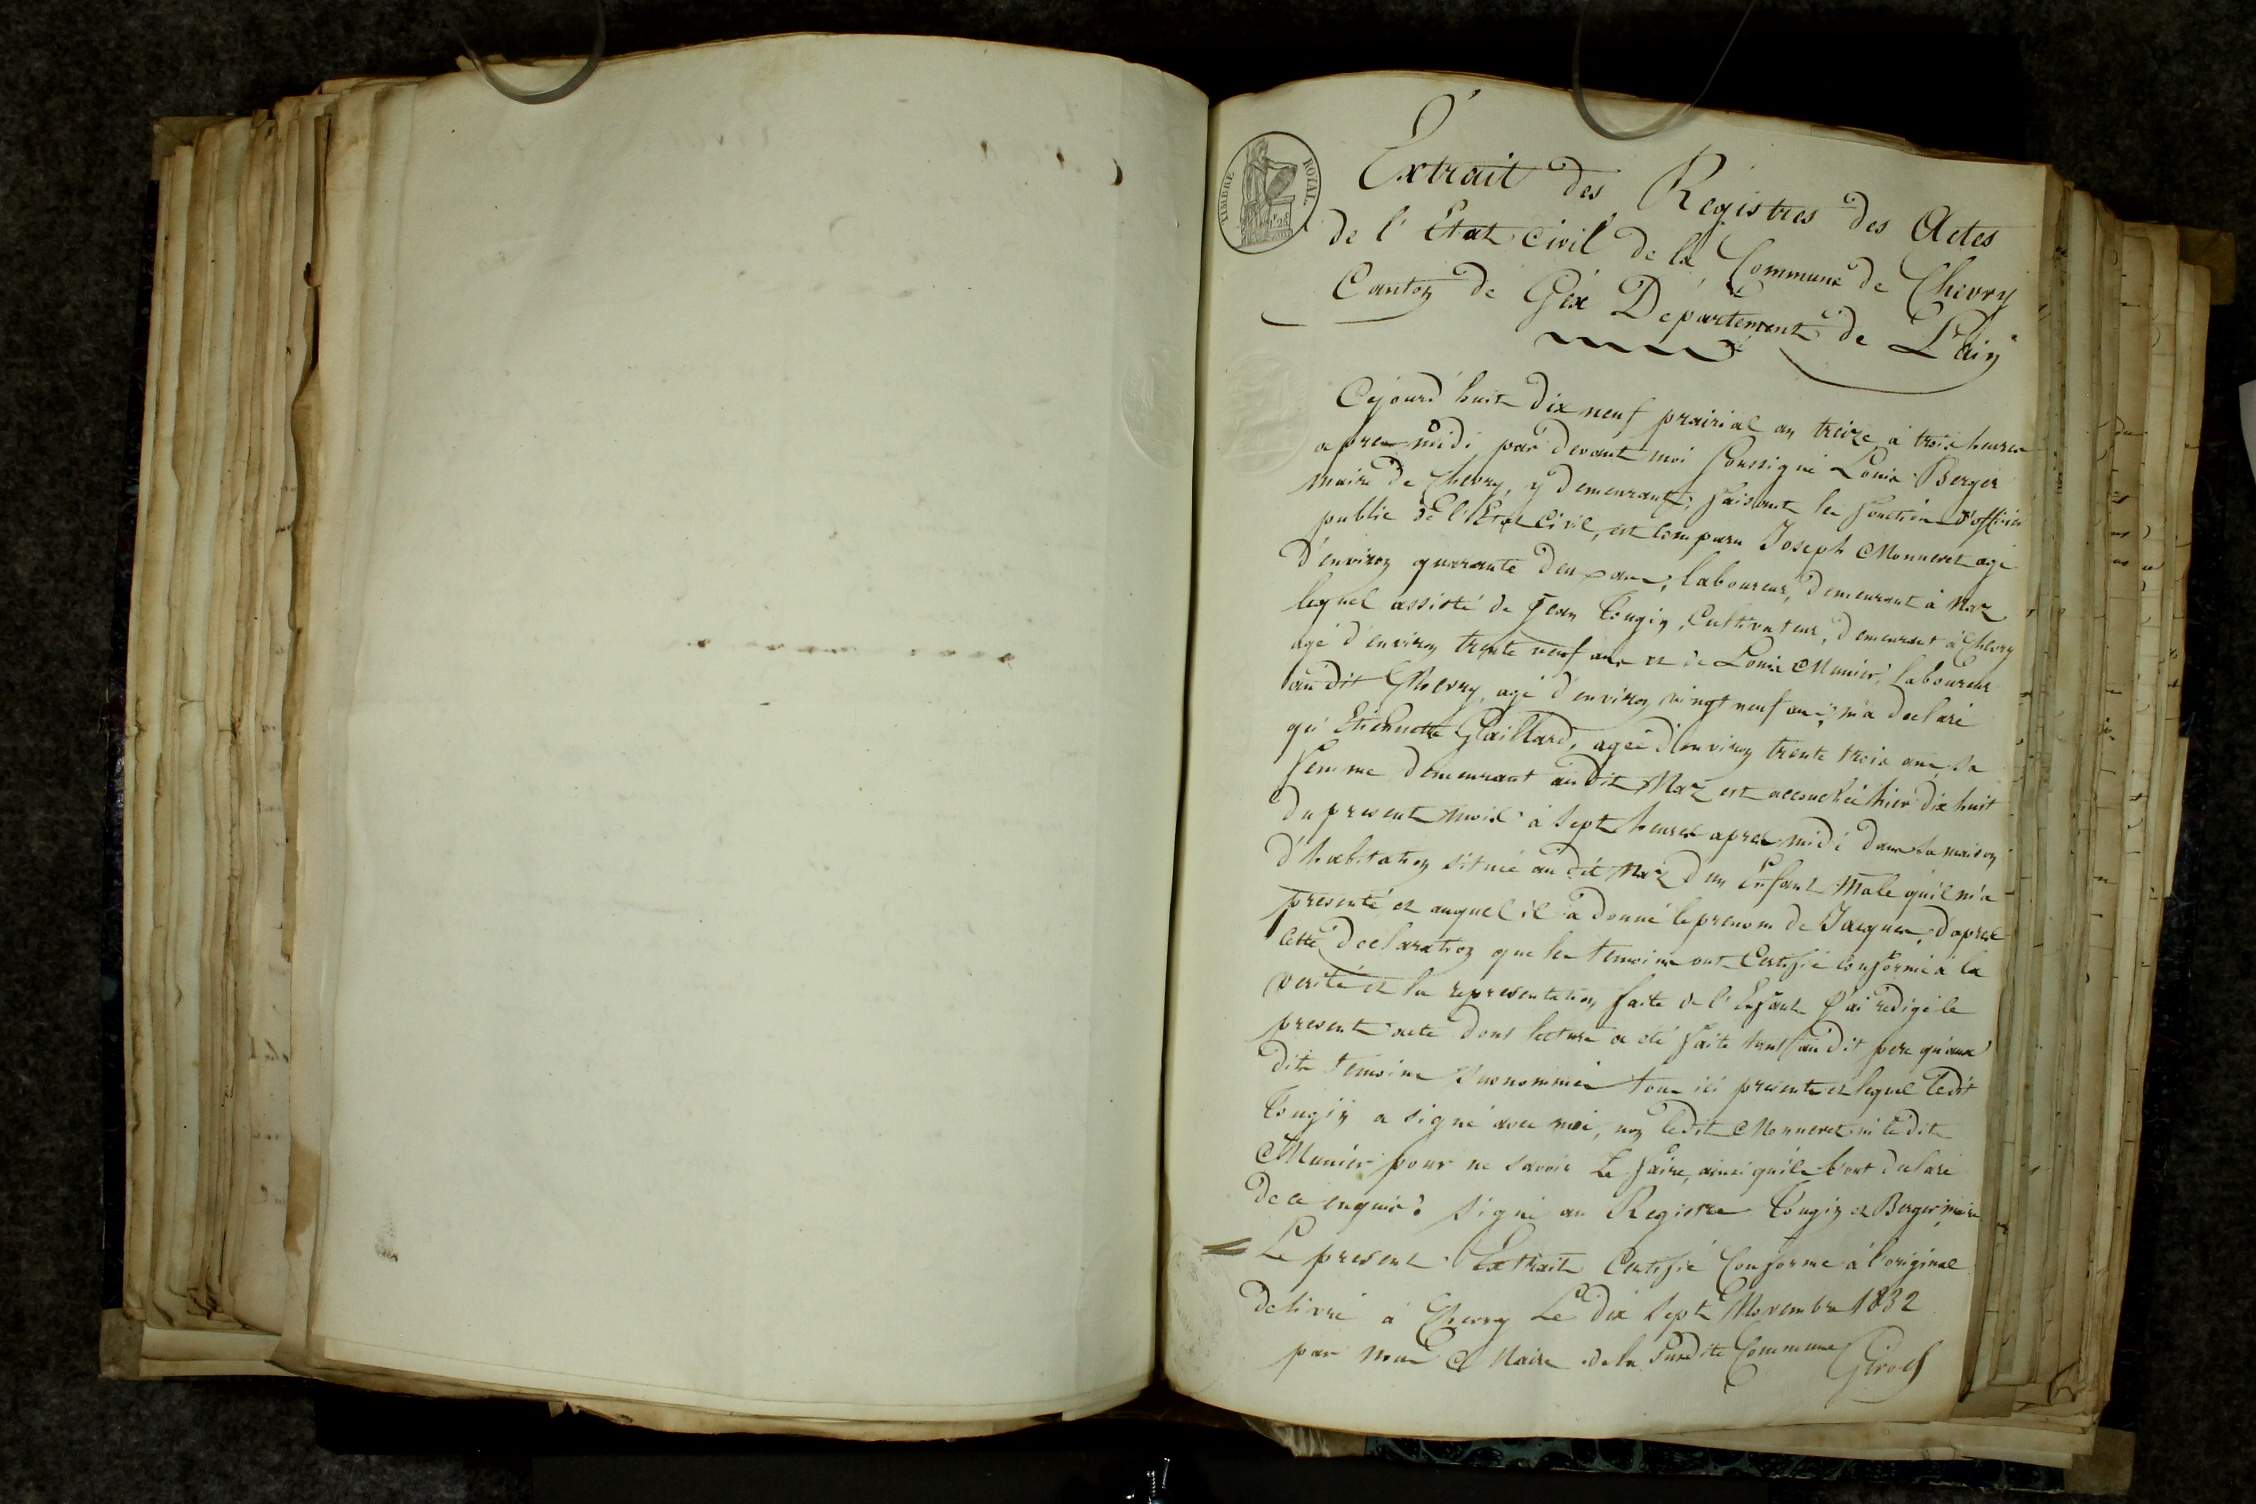 TIMBRE ROYAL
Extrait des Registres des Actes
de l'Etat civil de la Commune de Chevry
Canton de Gex Département de L'ain
Cejourd'huit dix neuf prairial an treize à trois heures
apres midi par devant moi soussigné Louis Berger
maire de Chevry, y demeurant, faisant les fonctions d'officier
public de l'Etat Civil, est comparu Joseph Monneret agé
d'environ quarante deux ans, laboureur, demeurant à Naz
lequel assisté de Jean Tougin, Cultivateur, demeurant à Chevry
agé d'environ trente neuf ans et de Louis Munier, laboureur
au dit Chevry, agé d'environ vingt neuf ans, m'a declaré
qu'Etiennette Gaillard, agée d'environ trente trois ans, sa
femme demeurant audit Naz est accouchée hier dix huit
du present mois à sept heures apres midi dans sa maison
d'habitation située au dit Naz d'un Enfant Male qu'il m'a
presenté et auquel il a donné le prenom de Jacques, d'apres
cette declaration que les temoins ont Certifié conforme à la
verité et la representation faite de l'Enfant J'ai redigé le
present acte dont lecture a été faite tant au dit pere qu'aux
dits temoins susnommés tous ici presents et lequel ledit
Tougin a signé avec moi, non ledit Monneret ni ledit
Munier pour ne savoir Le faire, ainsi qu'ils l'ont declaré
de ce enquis. Signé au Registre Tougin et Berger maire
Le present Extrait Certifié Conforme à l'original
delivré à Chevry Le dix sept Novembre 1832
par Nous Maire de la susdite Commune Girod